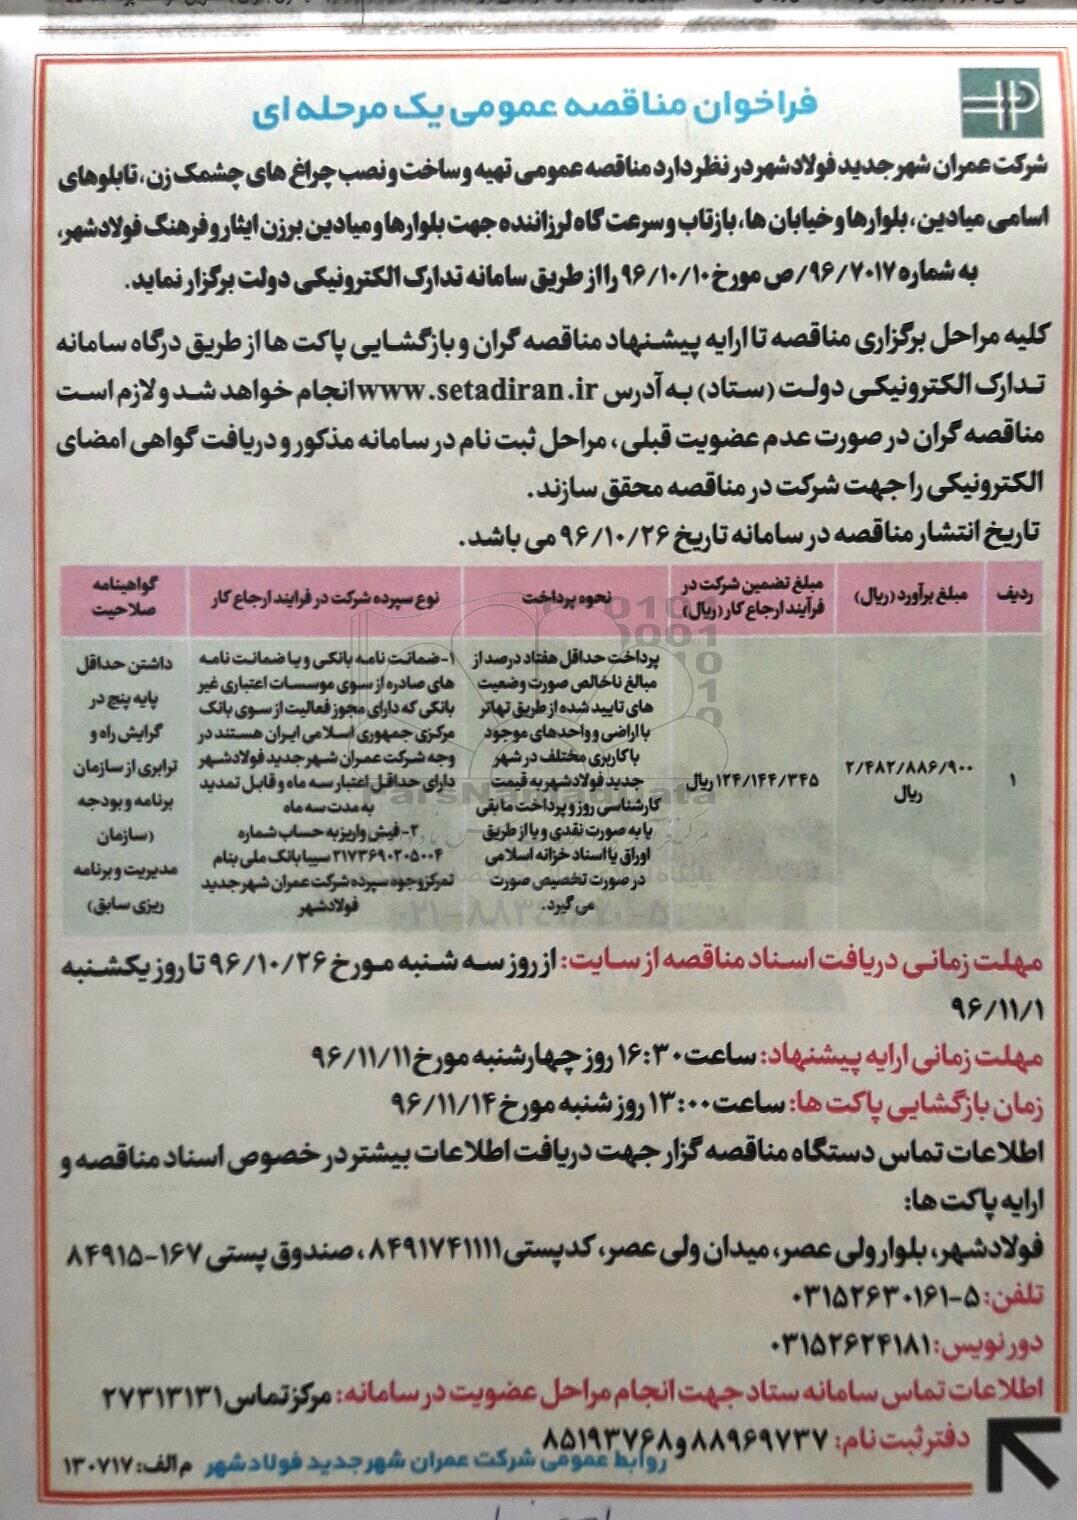 فراخوان مناقصه عمومی یک مرحله ای
شرکت عمران شهر جدید فولادشهر در نظر دارد مناقصه عمومی تهیه و ساخت و نصب چراغ های چشمک زن، تابلوهای
اسامی میادین، بلوارها و خیابان ها، بازتاب و سرعت گاه لرزاننده جهت بلوارها و میادین برزن ایثار و فرهنگ فولادشهر،
به شماره ۹۶/۷۰۱۷/ص مورخ ۹۶/۱۰/۱۰ را از طریق سامانه تدارک الکترونیکی دولت برگزار نماید.
کلیه مراحل برگزاری مناقصه تا ارایه پیشنهاد مناقصه گران و بازگشایی پاکت ها از طریق درگاه سامانه
تدارک الکترونیکی دولت (ستاد) به آدرس www.setadiran.ir انجام خواهد شد و لازم است
مناقصه گران در صورت عدم عضویت قبلی، مراحل ثبت نام در سامانه مذکور و دریافت گواهی امضای
الکترونیکی را جهت شرکت در مناقصه محقق سازند.
تاریخ انتشار مناقصه در سامانه تاریخ ۹۶/۱۰/۲۶ می باشد.
ردیف
مبلغ برآورد (ریال)
مبلغ تضمین شرکت در
فرآیند ارجاع کار (ریال)
نحوه پرداخت
نوع سپرده شرکت در فرایند ارجاع کار
گواهینامه
صلاحیت
۱
۲/۴۸۲/۸۸۶/۹۰۰
ریال
۱۲۴/۱۴۴/۳۴۵ ریال
پرداخت حداقل هفتاد درصد از
مبالغ ناخالص صورت وضعیت
های تایید شده از طریق تهاتر
با اراضی و واحدهای موجود
با کاربری مختلف در شهر
جدید فولادشهر به قیمت
کارشناسی روز و پرداخت مابقی
یا به صورت نقدی و یا از طریق
اوراق یا اسناد خزانه اسلامی
در صورت تخصیص صورت
می گیرد.
۱- ضمانت نامه بانکی و یا ضمانت نامه
های صادره از سوی موسسات اعتباری غیر
بانکی که دارای مجوز فعالیت از سوی بانک
مرکزی جمهوری اسلامی ایران هستند در
وجه شرکت عمران شهر جدید فولادشهر
دارای حداقل اعتبار سه ماه و قابل تمدید
به مدت سه ماه
۲- فیش واریز به حساب شماره
۲۱۷۳۶۹۰۲۰۵۰۰۴ سیبا بانک ملی بنام
تمرکز وجوه سپرده شرکت عمران شهر جدید
فولادشهر
داشتن حداقل
پایه پنج در
گرایش راه و
ترابری از سازمان
برنامه و بودجه
(سازمان
مدیریت و برنامه
ریزی سابق)
مهلت زمانی دریافت اسناد مناقصه از سایت: از روز سه شنبه مورخ ۹۶/۱۰/۲۶ تا روز یکشنبه
۹۶/۱۱/۱
مهلت زمانی ارایه پیشنهاد: ساعت ۱۶:۳۰ روز چهارشنبه مورخ ۹۶/۱۱/۱۱
زمان بازگشایی پاکت ها: ساعت ۱۳:۰۰ روز شنبه مورخ ۹۶/۱۱/۱۴
اطلاعات تماس دستگاه مناقصه گزار جهت دریافت اطلاعات بیشتر در خصوص اسناد مناقصه و
ارایه پاکت ها:
فولادشهر، بلوار ولی عصر، میدان ولی عصر، کد پستی ۸۴۹۱۷۴۱۱۱۱، صندوق پستی ۱۶۷-۸۴۹۱۵
تلفن: ۵-۰۳۱۵۲۶۳۰۱۶۱
دورنویس: ۰۳۱۵۲۶۲۴۱۸۱
اطلاعات تماس سامانه ستاد جهت انجام مراحل عضویت در سامانه: مرکز تماس ۲۷۳۱۳۱۳۱
دفتر ثبت نام: ۸۸۹۶۹۷۳۷ و ۸۵۱۹۳۷۶۸
روابط عمومی شرکت عمران شهر جدید فولادشهر م الف: ۱۳۰۷۱۷